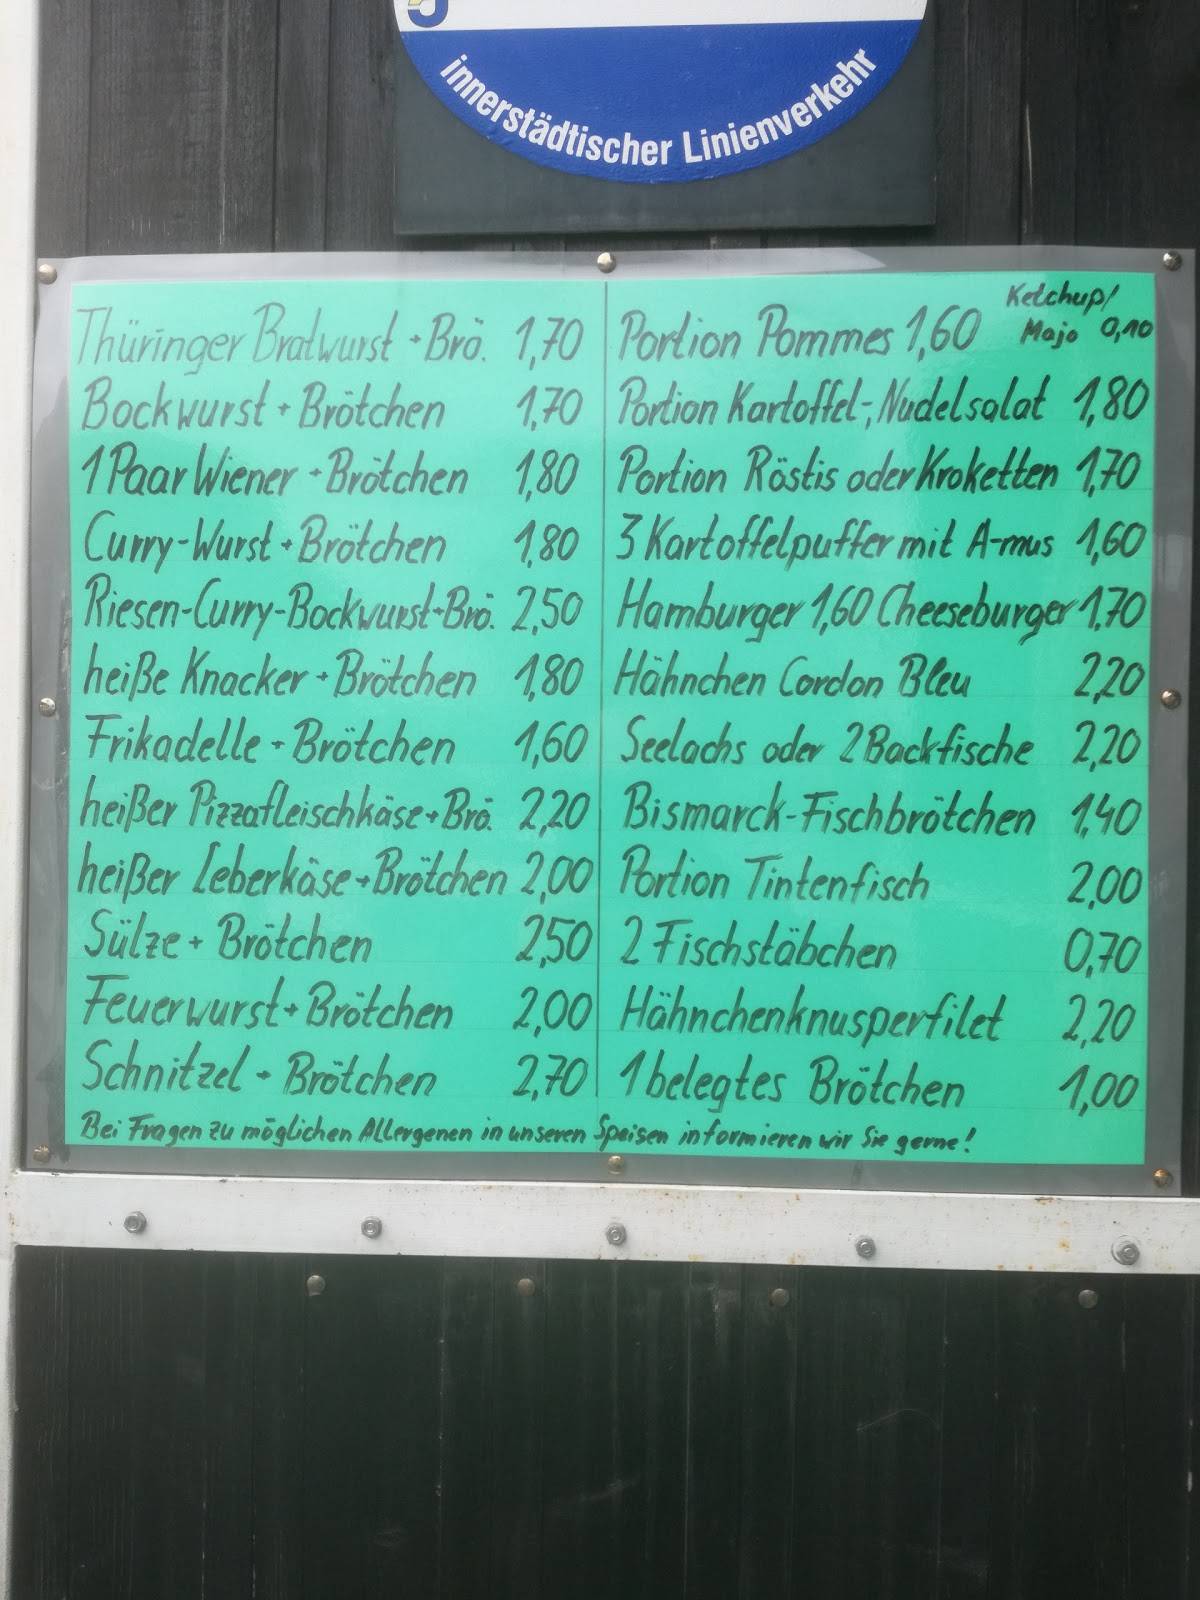 innerstädtischer Linienverkehr
Thüringer Bratwurst + Brö. 1,70
Bockwurst + Brötchen 1,70
1 Paar Wiener + Brötchen 1,80
Curry-Wurst + Brötchen 1,80
Riesen-Curry-Bockwurst+Brö. 2,50
heiße Knacker + Brötchen 1,80
Frikadelle + Brötchen 1,60
heißer Pizzafleischkäse+Brö. 2,20
heißer Leberkäse+Brötchen 2,00
Sülze + Brötchen 2,50
Feuerwurst + Brötchen 2,00
Schnitzel + Brötchen 2,70
Portion Pommes 1,60 Ketchup/
Majo 0,10
Portion Kartoffel-, Nudelsalat 1,80
Portion Röstis oder Kroketten 1,70
3 Kartoffelpuffer mit A-mus 1,60
Hamburger 1,60 Cheeseburger 1,70
Hähnchen Cordon Bleu 2,20
Seelachs oder 2 Backfische 2,20
Bismarck-Fischbrötchen 1,40
Portion Tintenfisch 2,00
2 Fischstäbchen 0,70
Hähnchenknusperfilet 2,20
1 belegtes Brötchen 1,00
Bei Fragen zu möglichen Allergenen in unseren Speisen informieren wir Sie gerne!